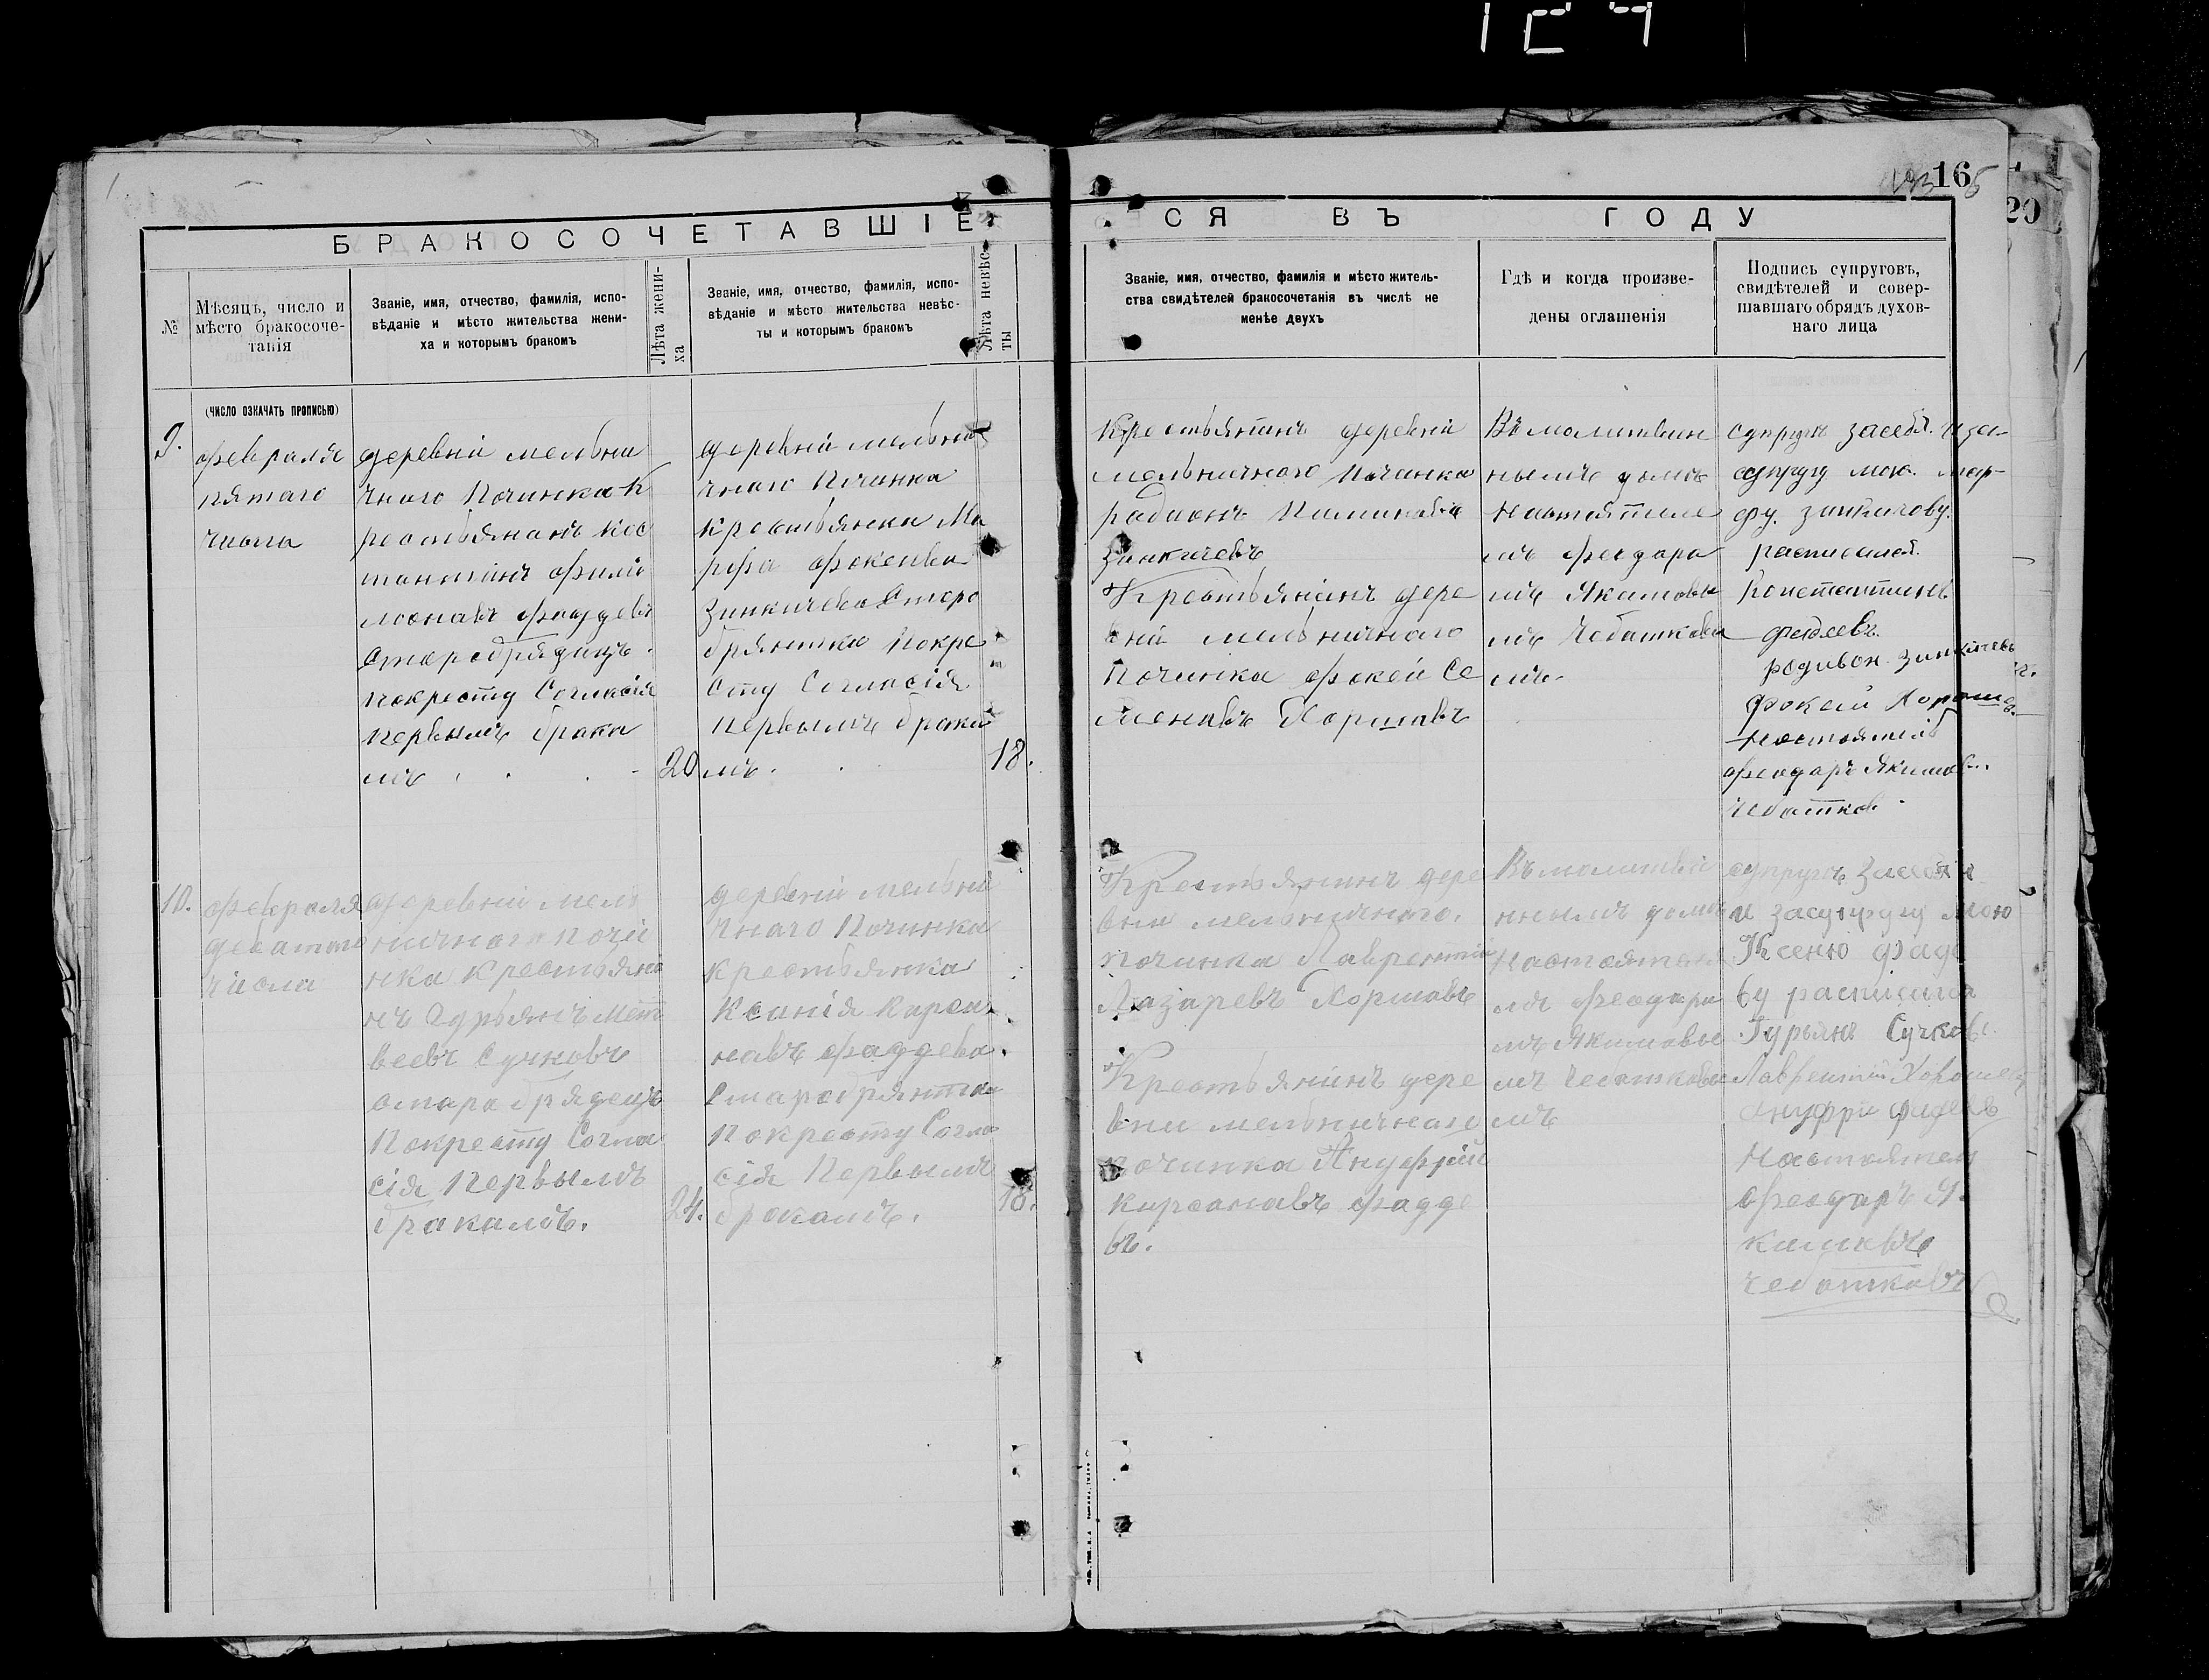 124
16
20
БРАКОСОЧЕТАВШІЕСЯ ВЪ ГОДУ
№
Мѣсяцъ, число и
мѣсто бракосоче-
танія
Званіе, имя, отчество, фамилія, испо-
вѣданіе и мѣсто жительства жени-
ха и которымъ бракомъ
Лѣта жени-
ха
Званіе, имя, отчество, фамилія, испо-
вѣданіе и мѣсто жительства невѣс-
ты и которымъ бракомъ
Лѣта невѣс-
ты
Званіе, имя, отчество, фамилія и мѣсто житель-
ства свидѣтелей бракосочетанія въ числѣ не
менѣе двухъ
Гдѣ и когда произве-
дены оглашенія
Подпись супруговъ,
свидѣтелей и совер-
шавшаго обрядъ духов-
наго лица
(число означать прописью)
9.
февраля
пятаго
числа
деревни мельни
чнаго Починка К
рестьянанъ Кос
тантинъ Фили
моонавъ Фаддевъ
Старобрядицъ
покресту Согласія
первымъ брака
мъ
20
деревни мельни
чнаго Починка
крестьянка Ма
рфа Фокеива
Зинкичева Старо
брянтка Покре
сту Согласія
первымъ брака
мъ.
18.
Крестьянинъ деревни
мельничнаго Починка
радионъ Пиминавъ
Зинкичевъ
Крестьянинъ дере
вни мельничнаго
Починка Фокей Се
меновъ Хоршавъ
Въ молитвин
нымъ домѣ
Настоятеле
мъ Феодара
мъ Якимовы
мъ Чебашкова
мъ.
супругъ засебя. и за
супругу мою. мар-
фу. зинкичову.
расписался.
Константинъ
Фадеевъ.
родивон. Зинкичевъ
Фокей Хорошев.
Настоятель
Феодаръ Якимов.
Чебошков.
10.
Февраля
девятого
числа
деревни мель
ничнаго почи
нка крестьяни
нъ Гурьянъ Мат
веевъ Сучковъ
старобрядецъ
Покресту Согла
сія первымъ
бракамъ.
24.
деревни мельни
чнаго Починка
крестьянка
Ксанія Кирса
навъ Фаддева.
Старобрянтка
Покресту Согла
сія Первымъ
бракамъ.
18.
Крестьянинъ дере
вни мельничнаго.
Починка Лаврентий
Лазаревъ Хоршавъ
Крестьянинъ дере
вни мельничнаго
Починка Ануфрий
кирсанавъ Фадде
въ.
Въ молитви
ннымъ домѣ
Настоятеле
мъ Феодара
мъ Якимовы
мъ Чебашкова
мъ
супругъ засебя
и засупругу мою
Ксеню Фаде
ву расписался
Гурьянъ Сучковъ.
Лаврентий Хорошевъ
Ануфри Фадеев
Настоятель
Феодаръ Я.
кимовъ
Чебошковъ